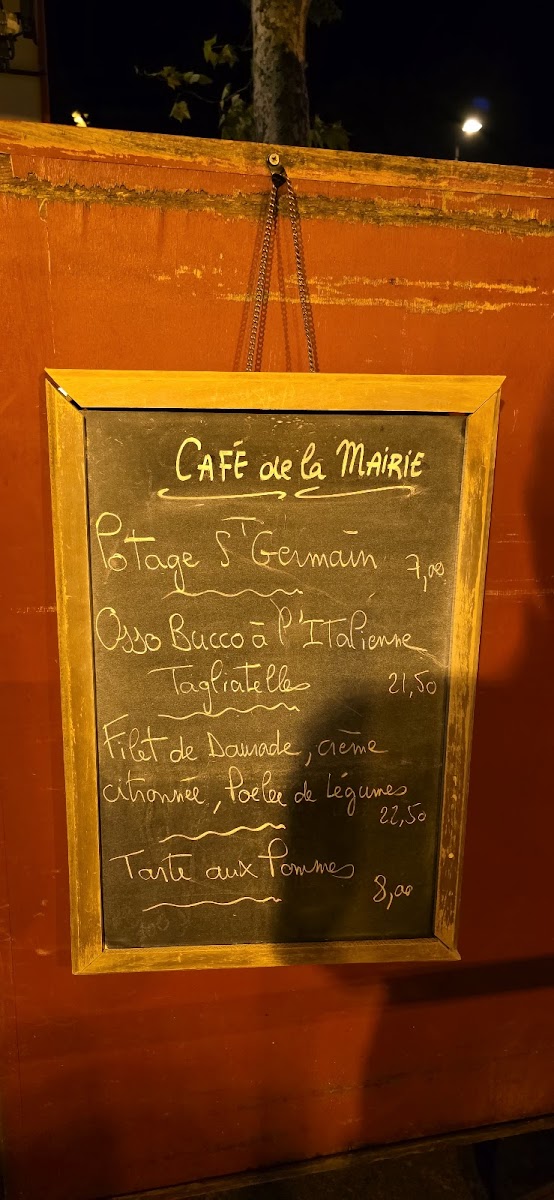 CAFÉ de la MAIRIE
Potage St Germain 7,00
Osso Bucco à l'Italienne
Tagliatelles 21,50
Filet de Daurade, crème
citronnée, Poelée de Légumes
22,50
Tarte aux Pommes
8,00